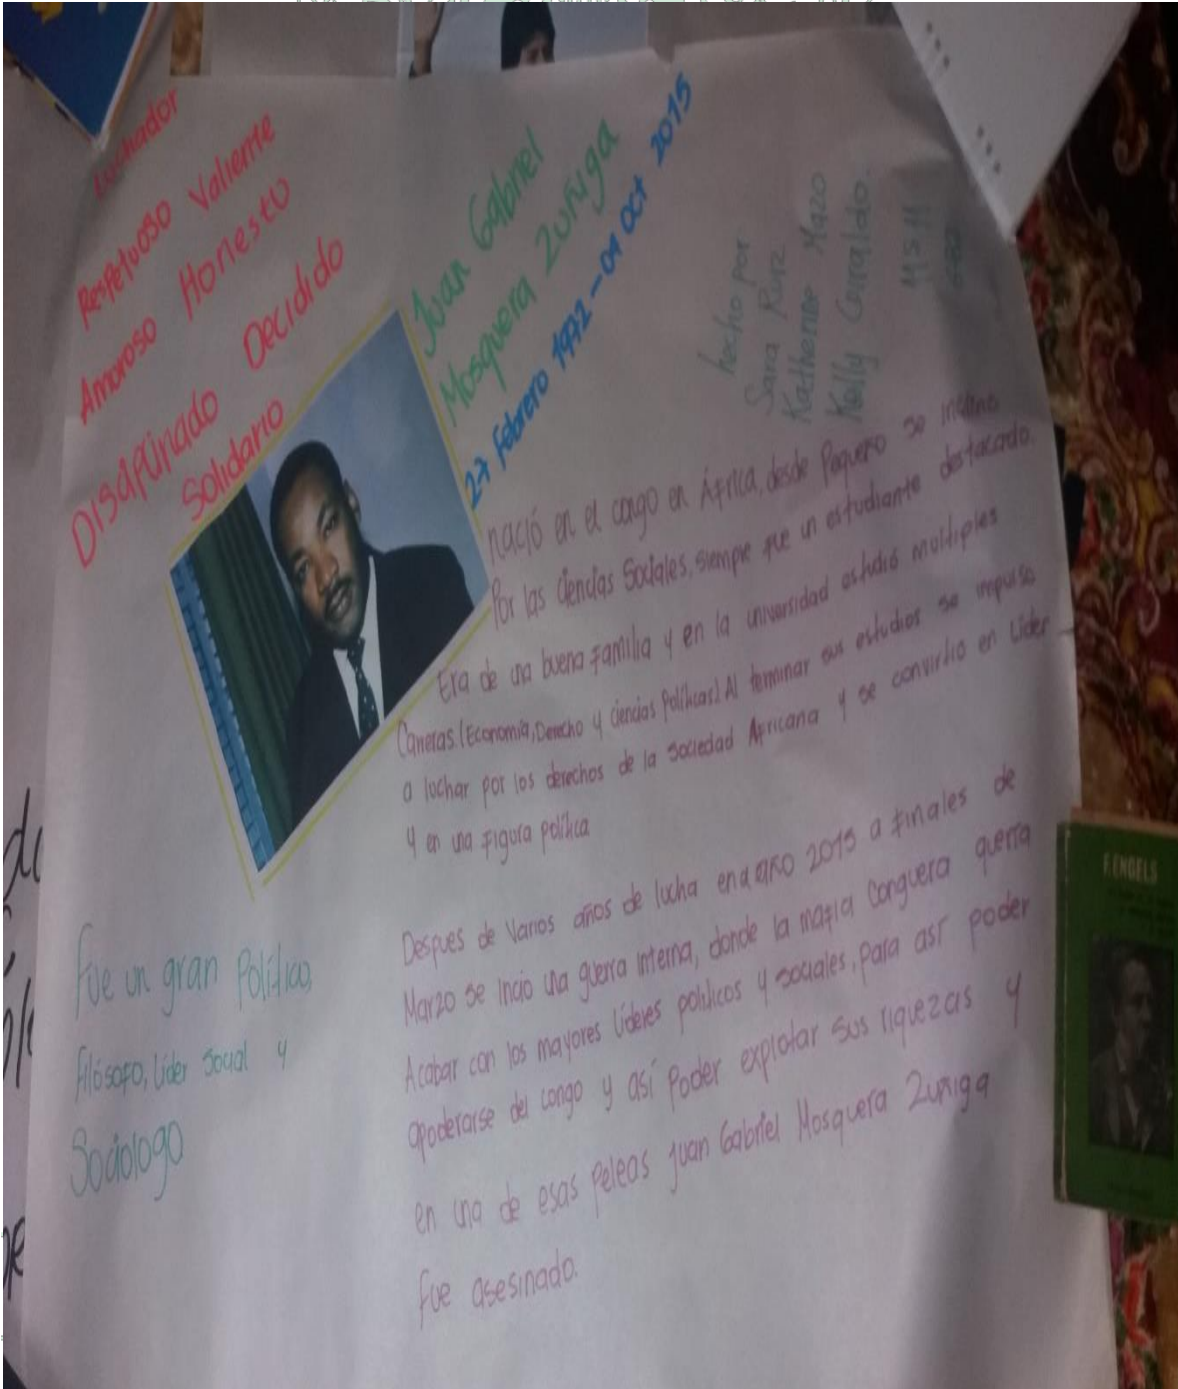 Luchador
Respetuoso Valiente
Amoroso Honesto
Disciplinado Decidido
Solidario
Juan Gabriel
Mosquera Zuñiga
27 Febrero 1972 - 01 Oct 2015
hecho por
Sara Ruiz
Katherine Mazo
Kelly Giraldo.
nació en el congo en África, desde Pequeño se inclino
Por las ciencias Sociales, siempre fue un estudiante destacado.
Era de una buena familia y en la universidad estudió multiples
Carreras. (Economía, Derecho y ciencias Políticas). Al terminar sus estudios se impulso
a luchar por los derechos de la sociedad Africana y se convirtio en Lider
y en una figura política
Despues de Varios años de lucha en el año 2015 a finales de
Marzo se inicio una guerra interna, donde la mafia conguera querra
Acabar con los mayores Líderes politicos y sociales, para así poder
apoderarse del congo y así Poder explotar sus riquezas y
en una de esas Peleas Juan Gabriel Mosquera Zuñiga
fue asesinado.
Fue un gran Político,
filósofo, Líder social y
Sociologo
F. ENGELS